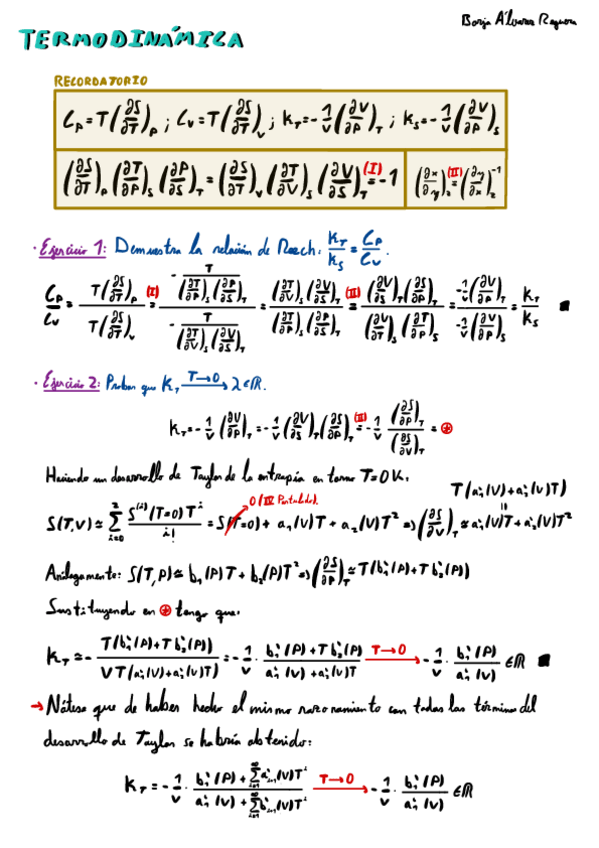 Borja Álvarez
TERMODINÁMICA
RECORDATORIO
C_P = T(∂S/∂T)_P ; C_V = T(∂S/∂T)_V ; K_T = -1/V (∂V/∂P)_T ; K_S = -1/V (∂V/∂P)_S
(∂S/∂T)_P (∂T/∂P)_S (∂P/∂S)_T = (∂S/∂T)_V (∂T/∂V)_S (∂V/∂S)_T =^(I) -1   (∂x/∂y)_z =^(II) (∂y/∂x)_z^-1
· Ejercicio 1: Demuestra la relación de Reech: K_T/K_S = C_P/C_V.
C_P/C_V = T(∂S/∂T)_P / T(∂S/∂T)_V =^(I) [-T / (∂T/∂P)_S (∂P/∂S)_T] / [-T / (∂T/∂V)_S (∂V/∂S)_T] = (∂T/∂V)_S (∂V/∂S)_T / (∂T/∂P)_S (∂P/∂S)_T =^(II) (∂V/∂S)_T (∂S/∂P)_T / (∂V/∂T)_S (∂T/∂P)_S = -1/V (∂V/∂P)_T / -1/V (∂V/∂P)_S = K_T/K_S ■
· Ejercicio 2: Probar que K_T —T→0→ λ ∈ ℝ.
K_T = -1/V (∂V/∂P)_T = -1/V (∂V/∂S)_T (∂S/∂P)_T =^(II) -1/V (∂S/∂P)_T / (∂S/∂V)_T = ⊛
Haciendo un desarrollo de Taylor de la entropía en torno T=0K:
0 (III Postulado).
T(a₁'(V)+a₂'(V)T)
S(T,V) ≃ Σ_{i=0}^{2} S^(i)(T=0)T^i / i! = S(T=0) + a₁(V)T + a₂(V)T² ⇒ (∂S/∂V)_T ≃ a₁'(V)T + a₂'(V)T²
Análogamente: S(T,P) ≃ b₁(P)T + b₂(P)T² ⇒ (∂S/∂P)_T ≃ T(b₁'(P)+T b₂'(P))
Sustituyendo en ⊛ tengo que:
K_T ≃ - T(b₁'(P)+T b₂'(P)) / VT(a₁'(V)+a₂'(V)T) = -1/V · b₁'(P)+T b₂'(P) / a₁'(V)+a₂'(V)T —T→0→ -1/V · b₁'(P)/a₁'(V) ∈ ℝ ■
→ Nótese que de haber hecho el mismo razonamiento con todos los términos del
desarrollo de Taylor se habría obtenido:
K_T = -1/V · b₁'(P) + Σ_{i=1}^{∞} a'_{i+1}(V)T^i / a₁'(V) + Σ_{i=1}^{∞} b'_{i+1}(V)T^i —T→0→ -1/V · b₁'(P)/a₁'(V) ∈ ℝ